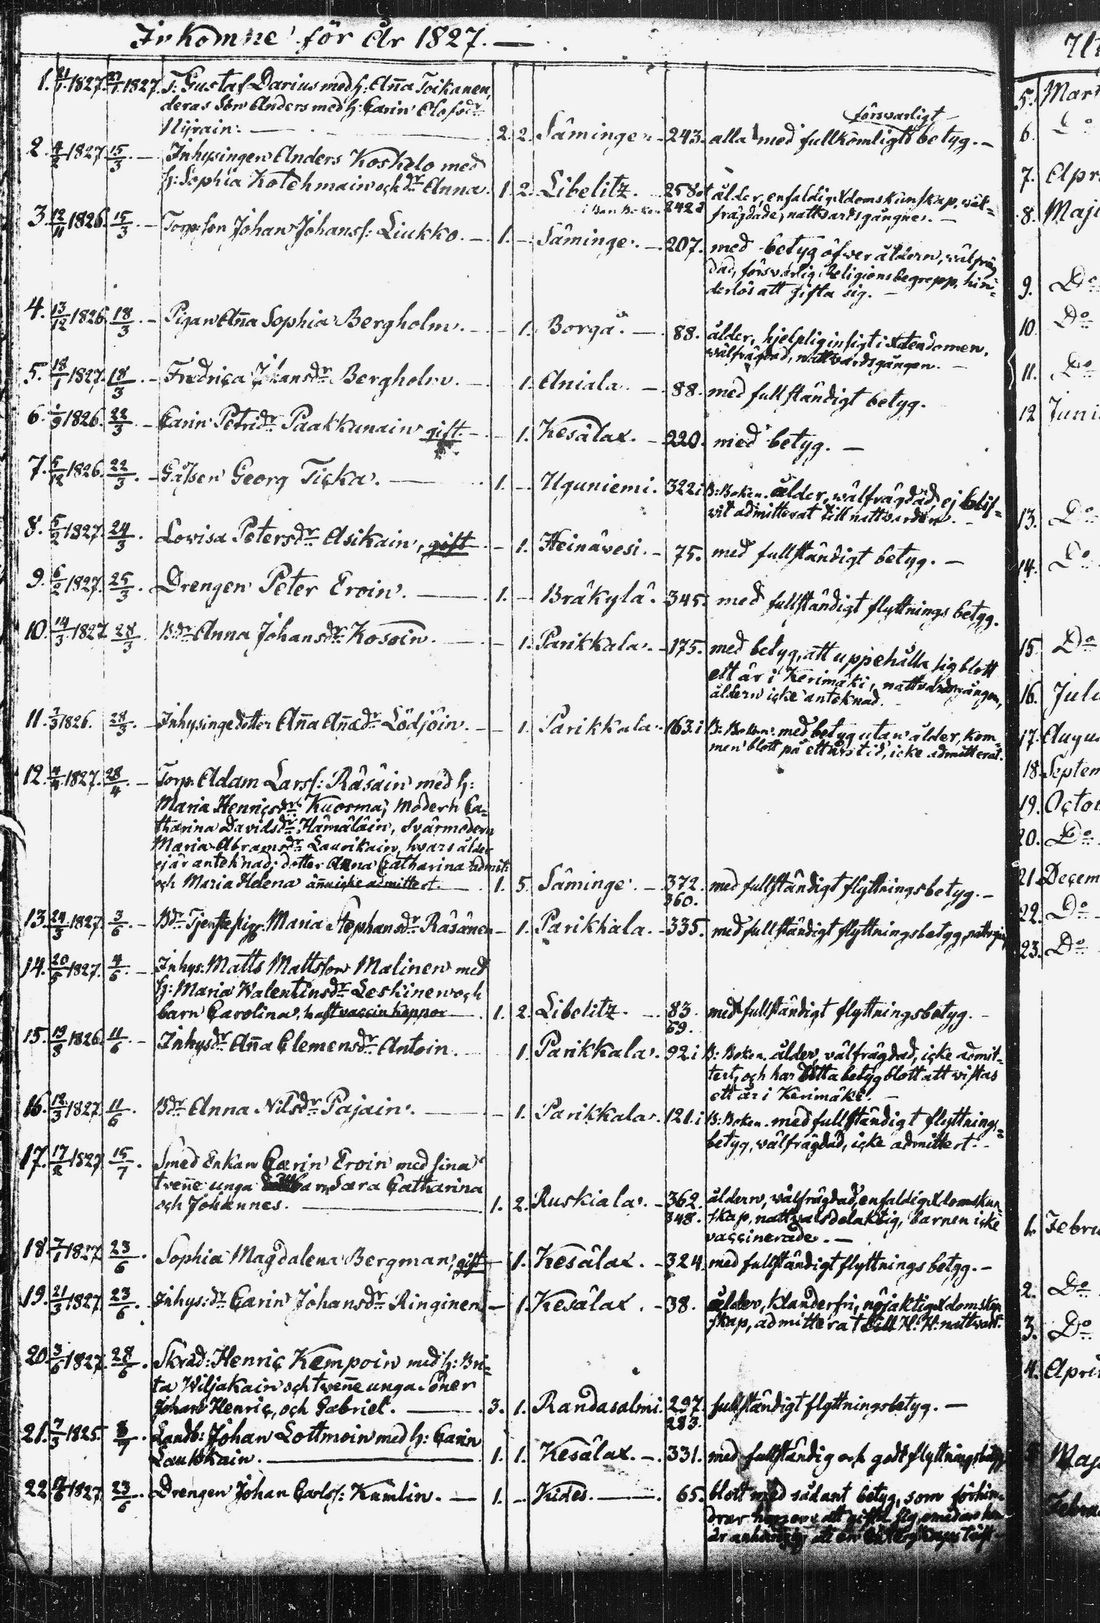 Inkomne för År 1827.
1. 21/1 1827. 27/1 1827. T. Gustaf Darius med h: Aña Toikanen,
deras Son Anders med h: Carin Olofsdr
Nijrain. — 2. 2. Säminge. 243. alla med försvarligt fullkomligt betyg. —
2. 4/2 1827. 15/3. — Inhysingen Anders Koskelo med
h: Sophia Kotehmain och dr Anna. 1. 2. Libelitz. ålder, enfaldig Xdomskunskap, väl-
frägdade, nattvardsgångne. —
3. 12/11 1826. 15/3. — Torpson Johan Johanss: Liukko. — 1. — Säminge. — 207. med betyg öfver åldern, välfräg
dad, försvarlig Religionsbegrepp, hin-
derlös att gifta sig. —
4. 13/12 1826. 18/3. — Pigan Aña Sophia Bergholm. — 1. Borgå. — 88. ålder, hjelplig insigt i Xstendomen,
välfrägdad, nattvardsgången. —
5. 18/1 1827. 18/3. — Fredrica Johansdr Bergholm. — 1. Aniala. — 88. med fullständigt betyg.
6. 1/9 1826. 22/3. — Carin Petridr Paakkunain gift. — 1. Kesälax. — 220. med betyg. —
7. 5/12 1826. 22/3. — Georg Ticka. — 1. — Uguniemi. 322 i B: Boken. ålder, välfrägdad, ej blif-
vit admitterat till nattvarden. —
8. 5/2 1827. 24/3. — Lovisa Petersdr Asikain, gift — 1. Heinävesi. — 75. med fullständigt betyg. —
9. 6/2 1827. 25/3. — Drengen Peter Eroin. — 1. — Bräkylä. 345. med fullständigt flyttnings betyg.
10. 14/3 1827. 28/3. — Bdr Anna Johansdr Kosoin. — 1. Parikkala. 175. med betyg, att uppehålla sig blott
ett år i Kerimäki, nattvardsgången,
åldern icke anteknad. —
11. 7/3 1826. 28/3. — Inhysinge dotter Aña Añadr Lödjöin. — 1. Parikkala. 163. i B: Boken. med betyg utan ålder, kom
men blott på ett års tid, icke admitterat.
12. 1827. 28/4. — Torp. Adam Larss: Räsäin med h:
Maria Henricsdr Kuosma, modern Ca-
tharina Davidsdr Hämäläin, Svärmodern
Maria Abramsdr Laurikain, hvars ålder
ej är anteknad; dotter Anna Catharina admitt
och Maria Helena ännu icke admittert. 1. 5. Säminge. — 372. 360. med fullständigt flyttningsbetyg. —
13. 24/3 1827. 3/6. — Bdr Tjenstepig. Maria Stephansdr Räsänen — 1. Parikkala. — 335. med fullständigt flyttningsbetyg,
14. 20/5 1827. 4/6. — Inhys: Matts Mattsson Malinen med
h: Maria Valentinsdr Leskinen och
barn Carolina, haft vaccin koppor — 1. 2. Libelitz. — 83. 69. med fullständigt flyttningsbetyg. —
15. 19/8 1826. 11/6. — Inhysdr Aña Clemensdr Antoin. — 1. Parikkala. 92 i B: Boken. ålder, välfrägdad, icke admit-
tert, och har detta betyg blott att vistas
ett år i Kerimäki. —
16. 12/3 1827. 11/6. Bdr Anna Nilsdr Pajain. — 1. Parikkala. 121. i B: Boken. med fullständigt flyttnings-
betyg, välfrägdad, icke admittert. —
17. 17/2 1827. 15/7. Smed Enkan Carin Eroin med sina
tveñe unga barn, Sara Catharina
och Johannes. — 1. 2. Ruskiala. — 362. 348. åldern, välfrägdad, enfaldig Xdomskun-
skap, nattvardsdelaktig, barnen icke
vaccinerade. —
18. 7/1 1827. 23/6. Sophia Magdalena Bergman, gift — 1. Kesälax. — 324. med fullständigt flyttnings betyg. —
19. 21/3 1827. 23/6. Inhys: dr Carin Johansdr Ringinen — 1. Kesälax. — 38. ålder, klanderfri, nöjaktig Xdomskun
skap, admitterat till H. H. nattvard.
20. 3/6 1827. 28/6. Skräd: Henric Kempoin med h: Bri-
ta Wiljakain och tveñe unga söner
Johan Henric, och Gabriel. — 3. 1. Randasalmi. 297. 283. fullständigt flyttningsbetyg. —
21. 7/3 1825. 8/7. Landb: Johan Lottmoin med h: Carin
Laukkain. — 1. 1. Kesälax. — 331. med fullständig och godt flyttningsbetyg
22. 1827. 23/6. Drengen Johan Carlss: Kumlin. — 1. — Kides. — 65. blott med sådant betyg, som förhin-
drar honom att gifta sig,
5. Mart
6. Do
7. Apri
8. Maji
9. Do
10. Do
11. Do
12. Juni
13. Do
14. Do
15. Do
16. Jula
17. Augu
18. Septem
19. Octo
20. Do
21. Decem
22. Do
23. Do
1. Febru
2. Do
3. Do
4. Apri
Maj
Febru